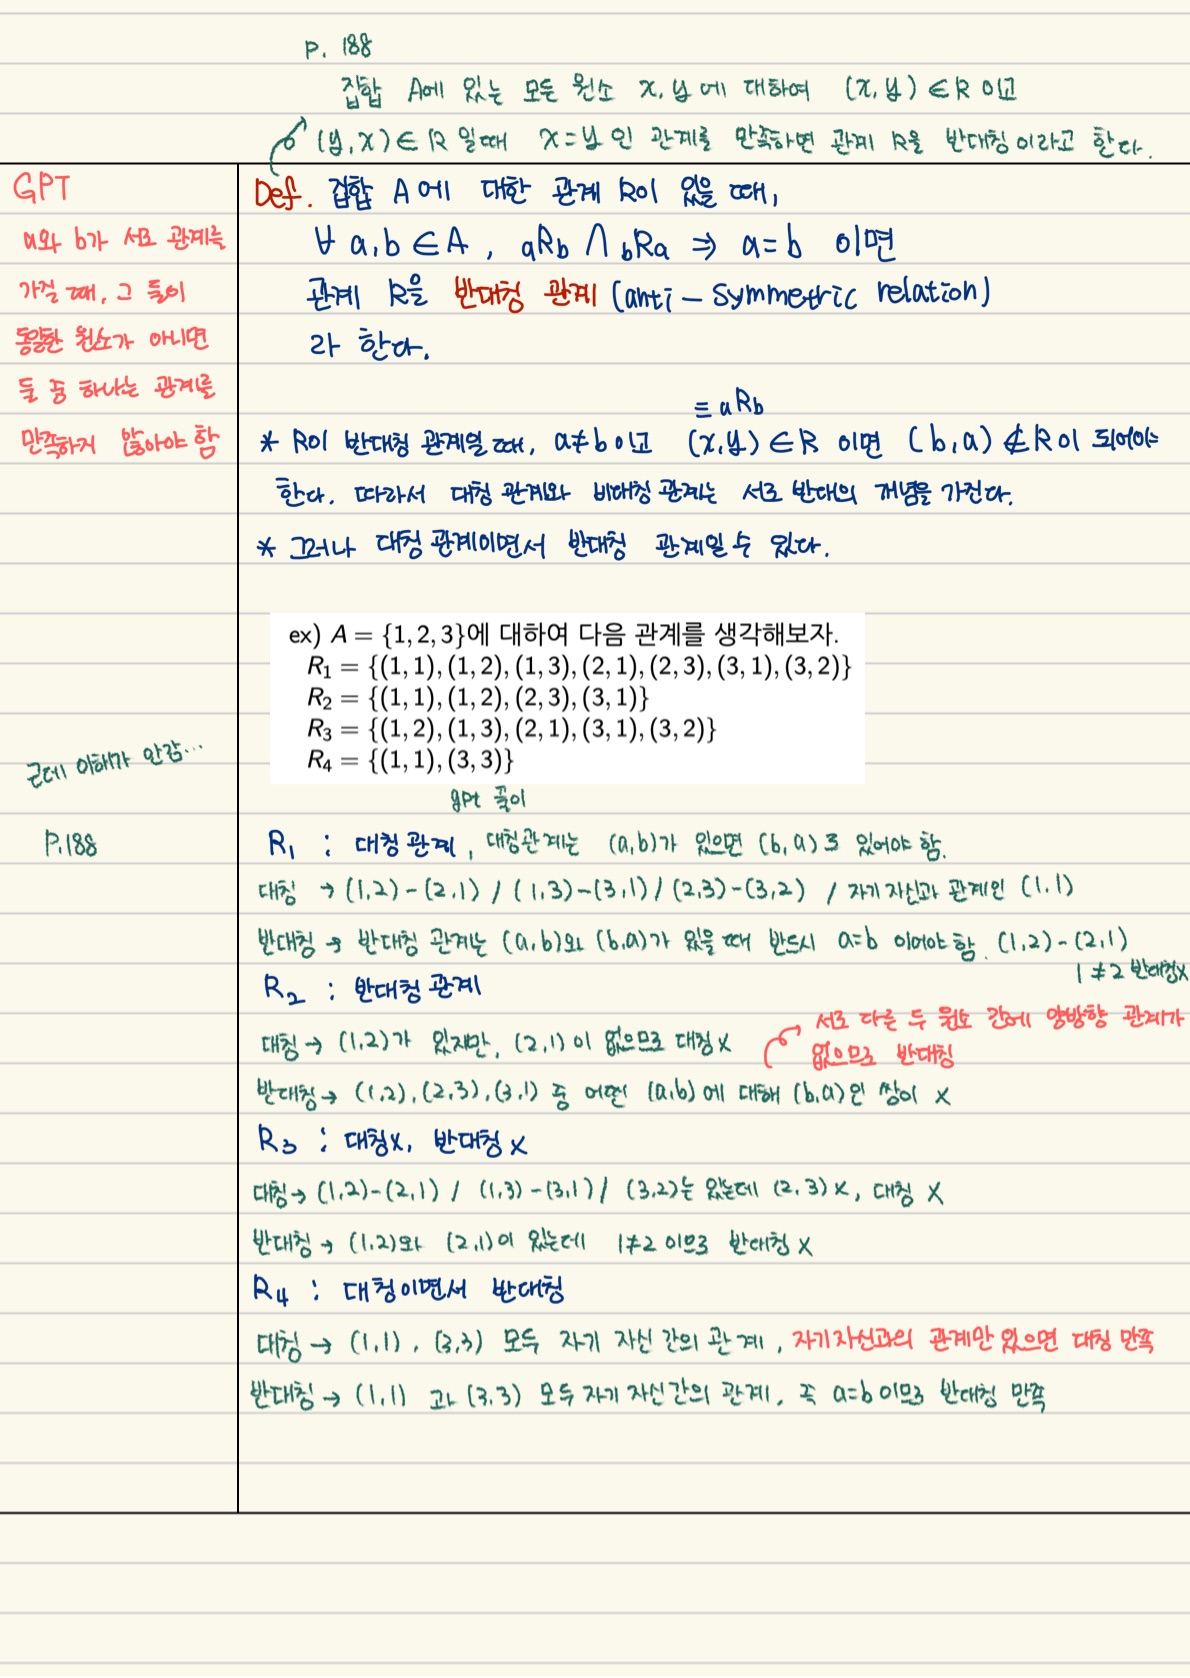 P. 188
집합 A에 있는 모든 원소 x, y에 대하여 (x, y) ∈ R 이고
(y, x) ∈ R 일때 x = y 인 관계를 만족하면 관계 R을 반대칭이라고 한다.
GPT
a와 b가 서로 관계를
가질 때, 그 둘이
동일한 원소가 아니면
둘 중 하나는 관계를
만족하지 않아야 함
Def. 집합 A에 대한 관계 R이 있을 때,
∀ a, b ∈ A, aRb ∧ bRa ⇒ a = b 이면
관계 R을 반대칭 관계 (anti - symmetric relation)
라 한다.
≡ aRb
* R이 반대칭 관계일 때, a≠b 이고 (x, y) ∈ R 이면 (b, a) ∉ R이 되어야
한다. 따라서 대칭 관계와 비대칭 관계는 서로 반대의 개념을 가진다.
* 그러나 대칭 관계이면서 반대칭 관계일 수 있다.
ex) A = {1, 2, 3}에 대하여 다음 관계를 생각해보자.
R1 = {(1, 1), (1, 2), (1, 3), (2, 1), (2, 3), (3, 1), (3, 2)}
R2 = {(1, 1), (1, 2), (2, 3), (3, 1)}
R3 = {(1, 2), (1, 3), (2, 1), (3, 1), (3, 2)}
R4 = {(1, 1), (3, 3)}
근데 이해가 안감...
gpt 풀이
P.188
R1 : 대칭 관계, 대칭관계는 (a, b)가 있으면 (b, a)도 있어야 함.
대칭 → (1,2) - (2,1) / (1,3) - (3,1) / (2,3) - (3,2) / 자기 자신과 관계인 (1,1)
반대칭 → 반대칭 관계는 (a,b)와 (b,a)가 있을 때 반드시 a=b 이어야 함. (1,2) - (2,1)
1 ≠ 2 반대칭x
R2 : 반대칭 관계
서로 다른 두 원소 간에 양방향 관계가
없으므로 반대칭
대칭 → (1,2)가 있지만, (2,1)이 없으므로 대칭 x
반대칭 → (1,2), (2,3), (3,1) 중 어떤 (a,b)에 대해 (b,a)인 쌍이 x
R3 : 대칭x, 반대칭 x
대칭 → (1,2) - (2,1) / (1,3) - (3,1) / (3,2)는 있는데 (2,3) x, 대칭 x
반대칭 → (1,2)와 (2,1)이 있는데 1≠2 이므로 반대칭 x
R4 : 대칭이면서 반대칭
대칭 → (1,1), (3,3) 모두 자기 자신 간의 관계, 자기자신과의 관계만 있으면 대칭 만족
반대칭 → (1,1) 과 (3,3) 모두 자기 자신간의 관계, 즉 a=b 이므로 반대칭 만족